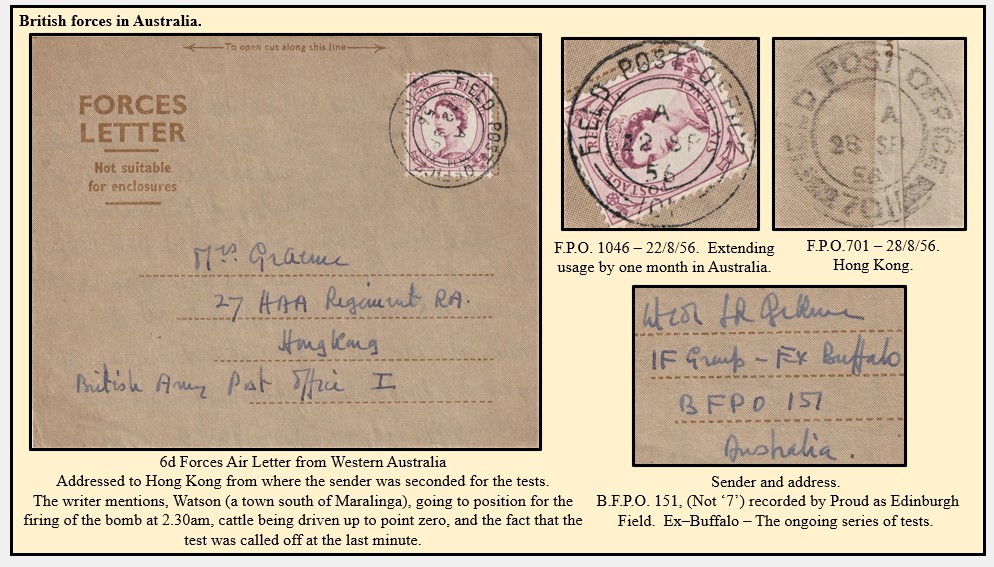 British forces in Australia.
To open cut along this line
FORCES
LETTER
Not suitable
for enclosures
FIELD POST OFFICE
Mrs. Graeme
27 HAA Regiment, RA.
Hong Kong
British Army Post Office I
6d Forces Air Letter from Western Australia
Addressed to Hong Kong from where the sender was seconded for the tests.
The writer mentions, Watson (a town south of Maralinga), going to position for the
firing of the bomb at 2.30am, cattle being driven up to point zero, and the fact that the
test was called off at the last minute.
FIELD POST OFFICE
A
22 SP
56
POSTAGE
F.P.O. 1046 – 22/8/56. Extending
usage by one month in Australia.
POST OFFICE
A
28 SP
56
701
F.P.O.701 – 28/8/56.
Hong Kong.
IF Group - Ex Buffalo
BFPO 151
Australia.
Sender and address.
B.F.P.O. 151, (Not ‘7’) recorded by Proud as Edinburgh
Field. Ex–Buffalo – The ongoing series of tests.